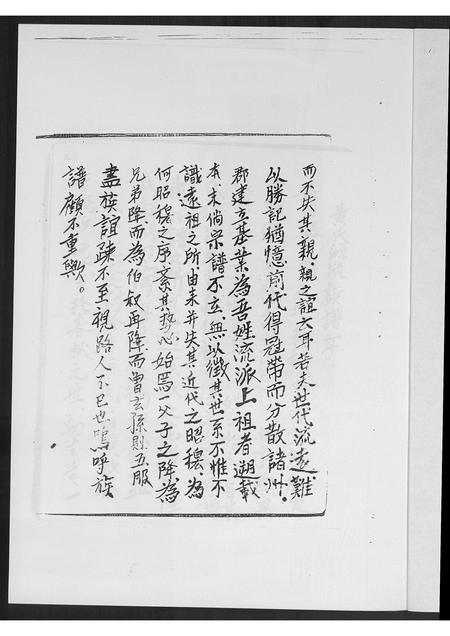 而不失其親親之誼云耳若夫世代流遠難
以勝記猶憶前代得冠帶而分散諸州。
郡建立基業為吾姓流派上祖者遡載
本末倘宗譜不立無以徵其世系不惟不
識遠祖之所由来并失其近代之昭穆為
何昭穆之序紊其勢必始焉一父子之降為
兄弟降而為伯叔再降而曾玄孫則五服
盡族誼疎不至視路人不已也嗚呼族
譜顧不重歟。